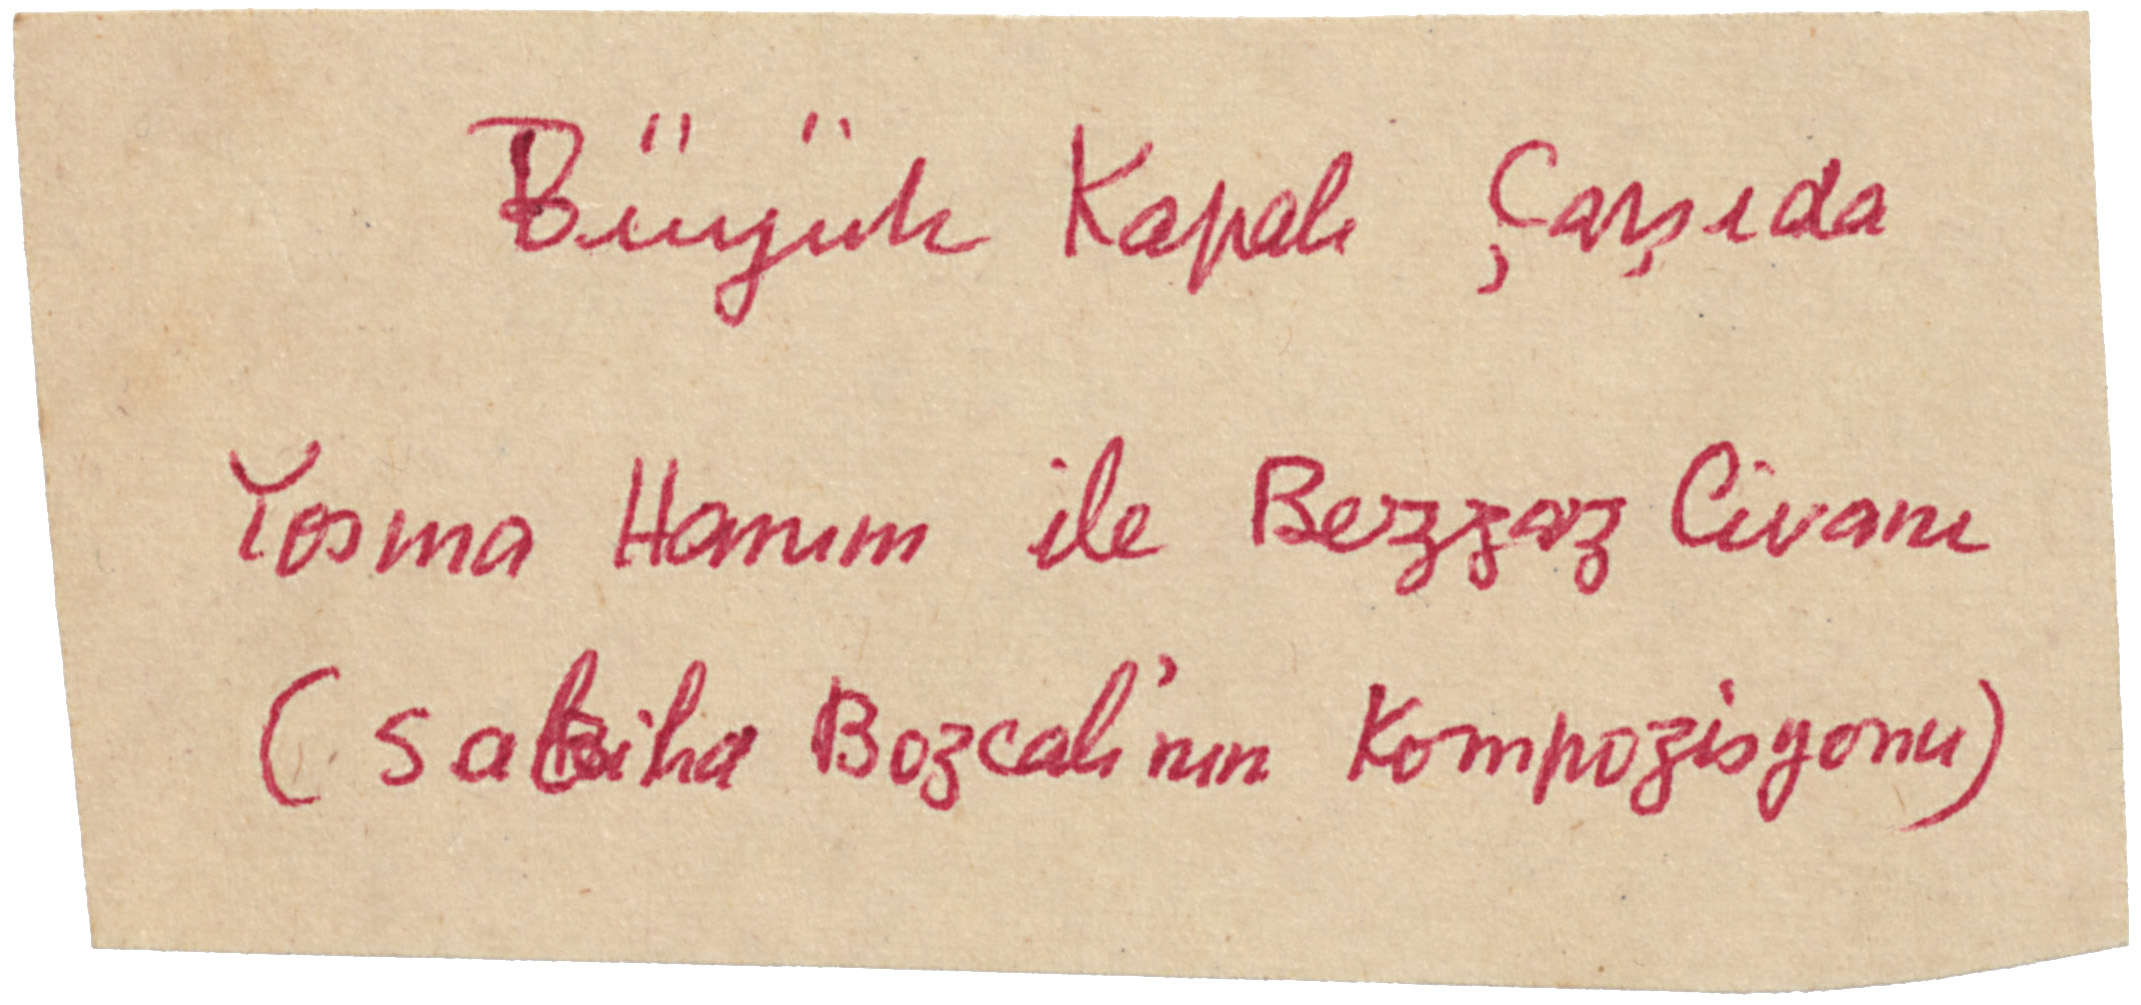 Büyük Kapalı Çarşıda
Yosma Hanım ile Bezzaz Civanı
(Sabiha Bozcalı'nın Kompozisyonu)